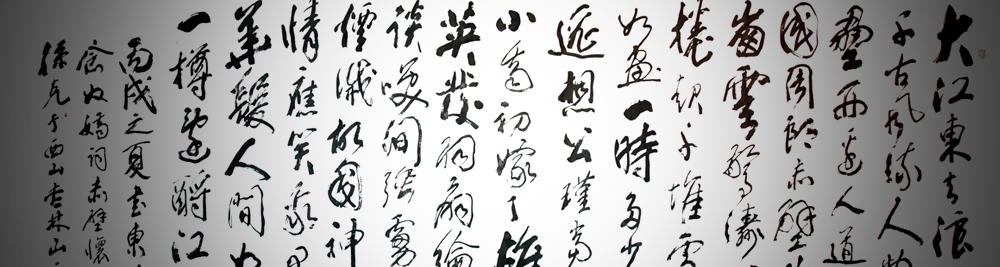 大江東去浪
千古風流人物
壘西邊人道
國周郎赤壁
崩雲驚濤
捲起千堆雪
如畫一時多少
遥想公瑾當
小喬初嫁了雄
英發羽扇綸
談笑間強虜
煙滅故國神
情應笑我早
華髮人間如
一樽還酹江
丙戌之夏書東
念奴嬌詞赤壁懷
於西山杏林山